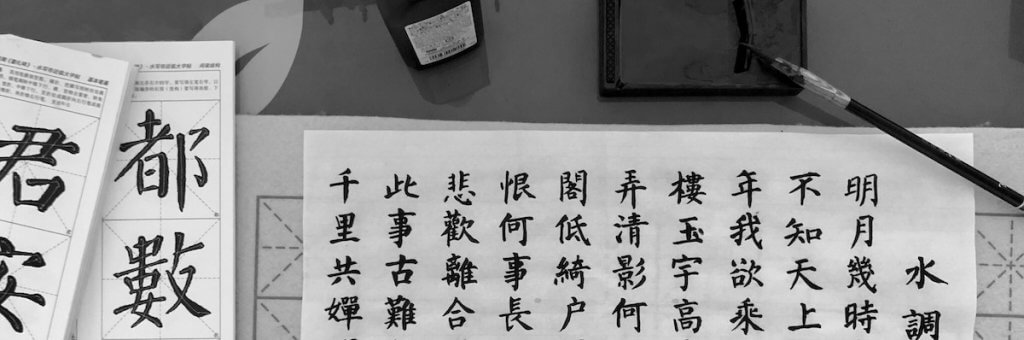 水調
明月幾時
不知天上
年我欲乘
樓玉宇高
弄清影何
閣低綺户
恨何事長
悲歡離合
此事古難
千里共嬋
都
數
君